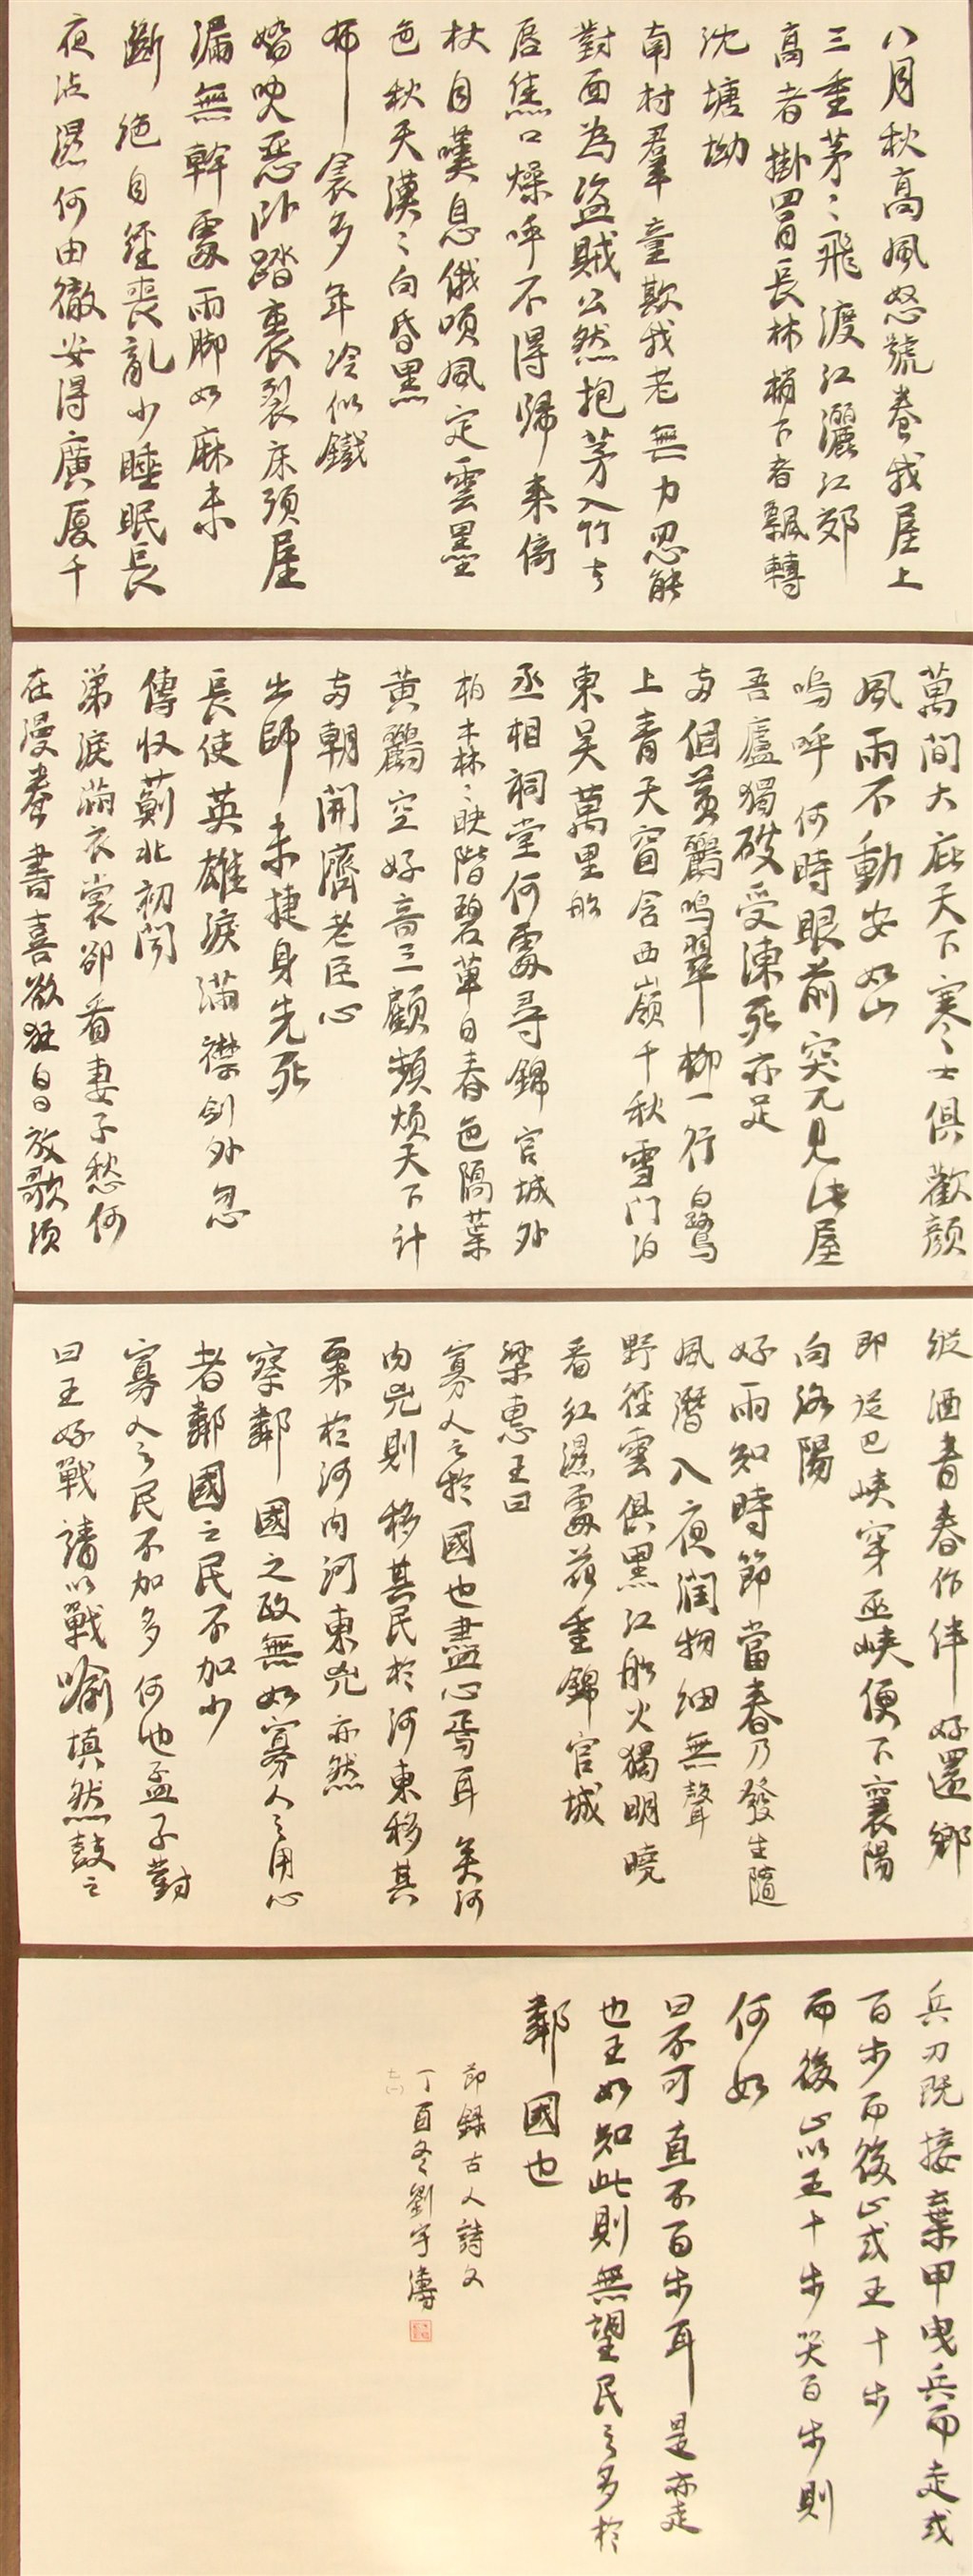 八月秋高風怒號卷我屋上
三重茅茅飛渡江灑江郊
高者掛罥長林梢下者飄轉
沈塘坳
南村羣童欺我老無力忍能
對面為盜賊公然抱茅入竹去
唇焦口燥呼不得歸來倚
杖自嘆息俄頃風定雲墨
色秋天漠漠向昏黑
布衾多年冷似鐵
嬌兒惡卧踏裏裂床頭屋
漏無幹處雨脚如麻未
斷絶自經喪亂少睡眠長
夜沾濕何由徹安得廣厦千
萬間大庇天下寒士俱歡顔
風雨不動安如山
嗚呼何時眼前突兀見此屋
吾廬獨破受凍死亦足
兩個黃鸝鳴翠柳一行白鷺
上青天窗含西嶺千秋雪門泊
東吴萬里船
丞相祠堂何處尋錦官城外
柏森森映階碧草自春色隔葉
黃鸝空好音三顧頻煩天下計
兩朝開濟老臣心
出師未捷身先死
長使英雄淚滿襟劍外忽
傳收薊北初聞
涕淚滿衣裳卻看妻子愁何
在漫卷詩書喜欲狂白日放歌須
縱酒青春作伴好還鄉
即從巴峽穿巫峽便下襄陽
向洛陽
好雨知時節當春乃發生隨
風潛入夜潤物細無聲
野徑雲俱黑江船火獨明曉
看紅濕處花重錦官城
梁惠王曰
寡人之於國也盡心焉耳矣河
内兇則移其民於河東移其
粟於河内河東兇亦然
察鄰國之政無如寡人之用心
者鄰國之民不加少
寡人之民不加多何也孟子對
曰王好戰請以戰喻填然鼓之
兵刃既接棄甲曳兵而走或
百步而後止或五十步
而後止以五十步笑百步則
何如
曰不可直不百步耳是亦走
也王如知此則無望民之多於
鄰國也
節録古人詩文
丁酉冬劉宇濤